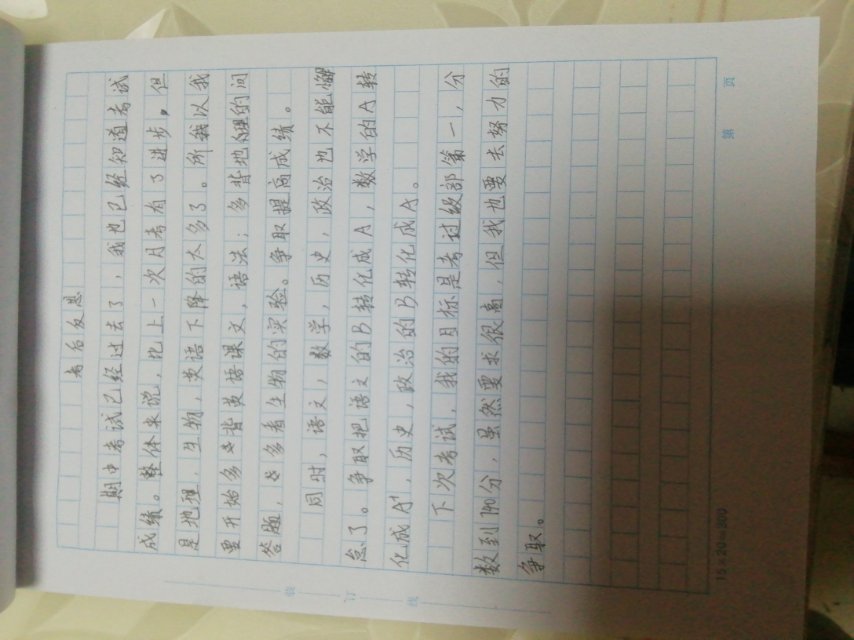 考后反思
期中考试已经过去了，我也已经知道考试
成绩。整体来说，比上一次月考有了进步，但
是地理，生物，英语下降的太多了。所以我
要开始多背英语课文，语法；多背地理的问
答题，多看生物的实验。争取提高成绩。
同时，语文，数学，历史，政治也不能懈
怠了。争取把语文的B转化成A，数学的A转
化成A⁺，历史，政治的B转化成A。
下次考试，我的目标是考过级部第一，分
数到740分，虽然要求很高，但我也要去努力的
争取。
第 页
装 订 线
15×20=300